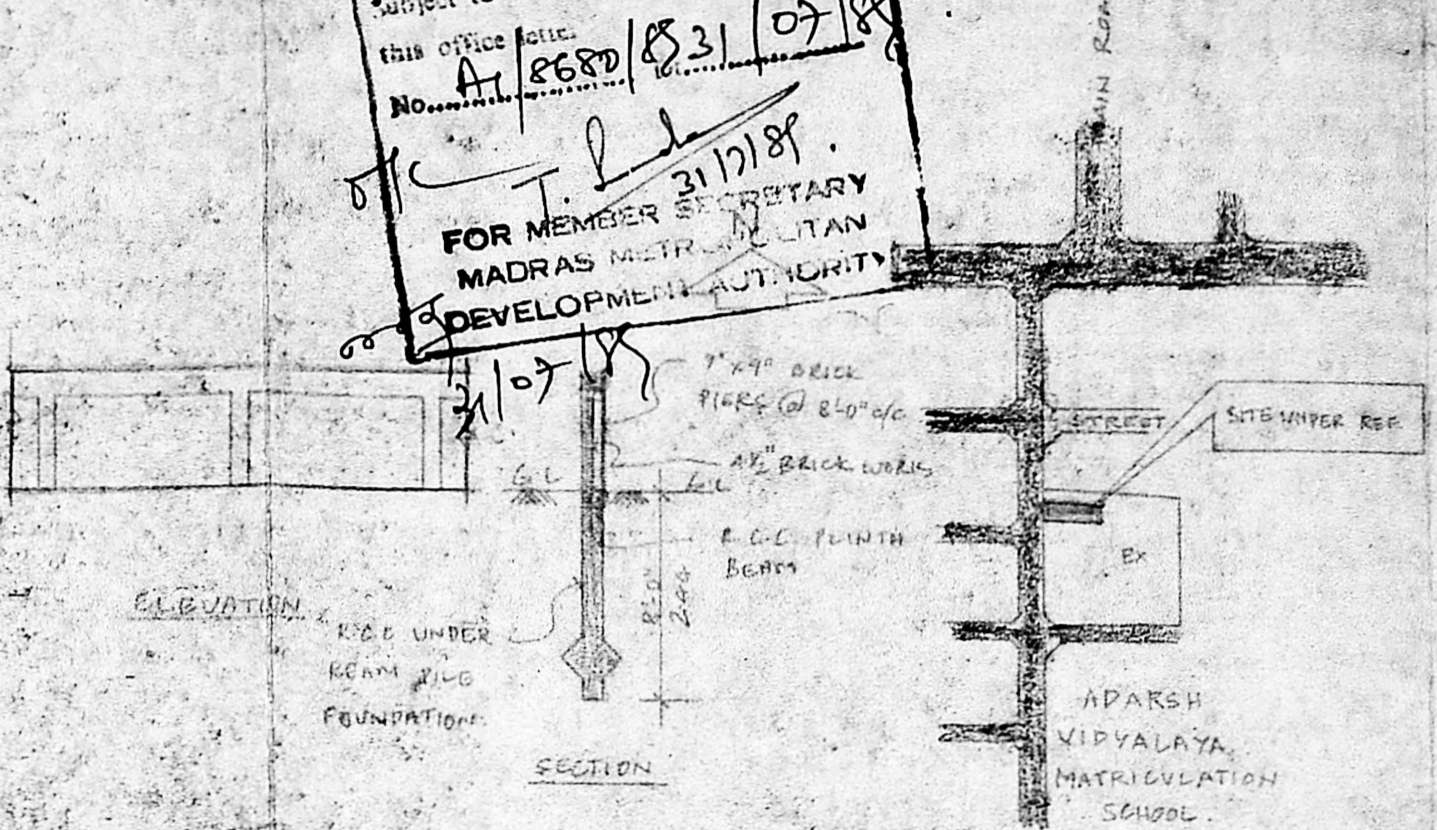 Subject to
this office letter
No. A1/8680/89 31/07/89
31/7/89.
FOR MEMBER SECRETARY
MADRAS METROPOLITAN
DEVELOPMENT AUTHORITY
31/07
MAIN ROA
9" x 9" BRICK
PIERS @ 8'-0" c/c
4½" BRICK WORK
G.L
G.L
R.C.C PLINTH
BEAM
8'-0"
244
ELEVATION
R.C.C UNDER
REAM PILE
FOUNDATION
SECTION
STREET
SITE UNDER REF
EX
ADARSH
VIDYALAYA
MATRICULATION
SCHOOL.